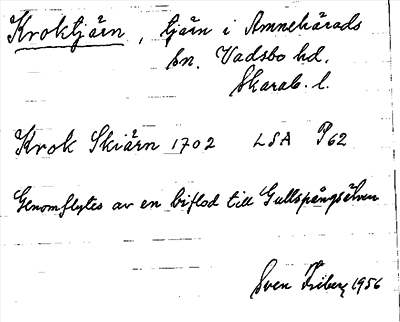 Kroktjärn, tjärn i Amnehärads
sn. Vadsbo hd.
Skarab. l.
Krok Skiärn 1702 LSA P62
Genomflytes av en biflod till Gullspångsälven
Sven Friberg 1956